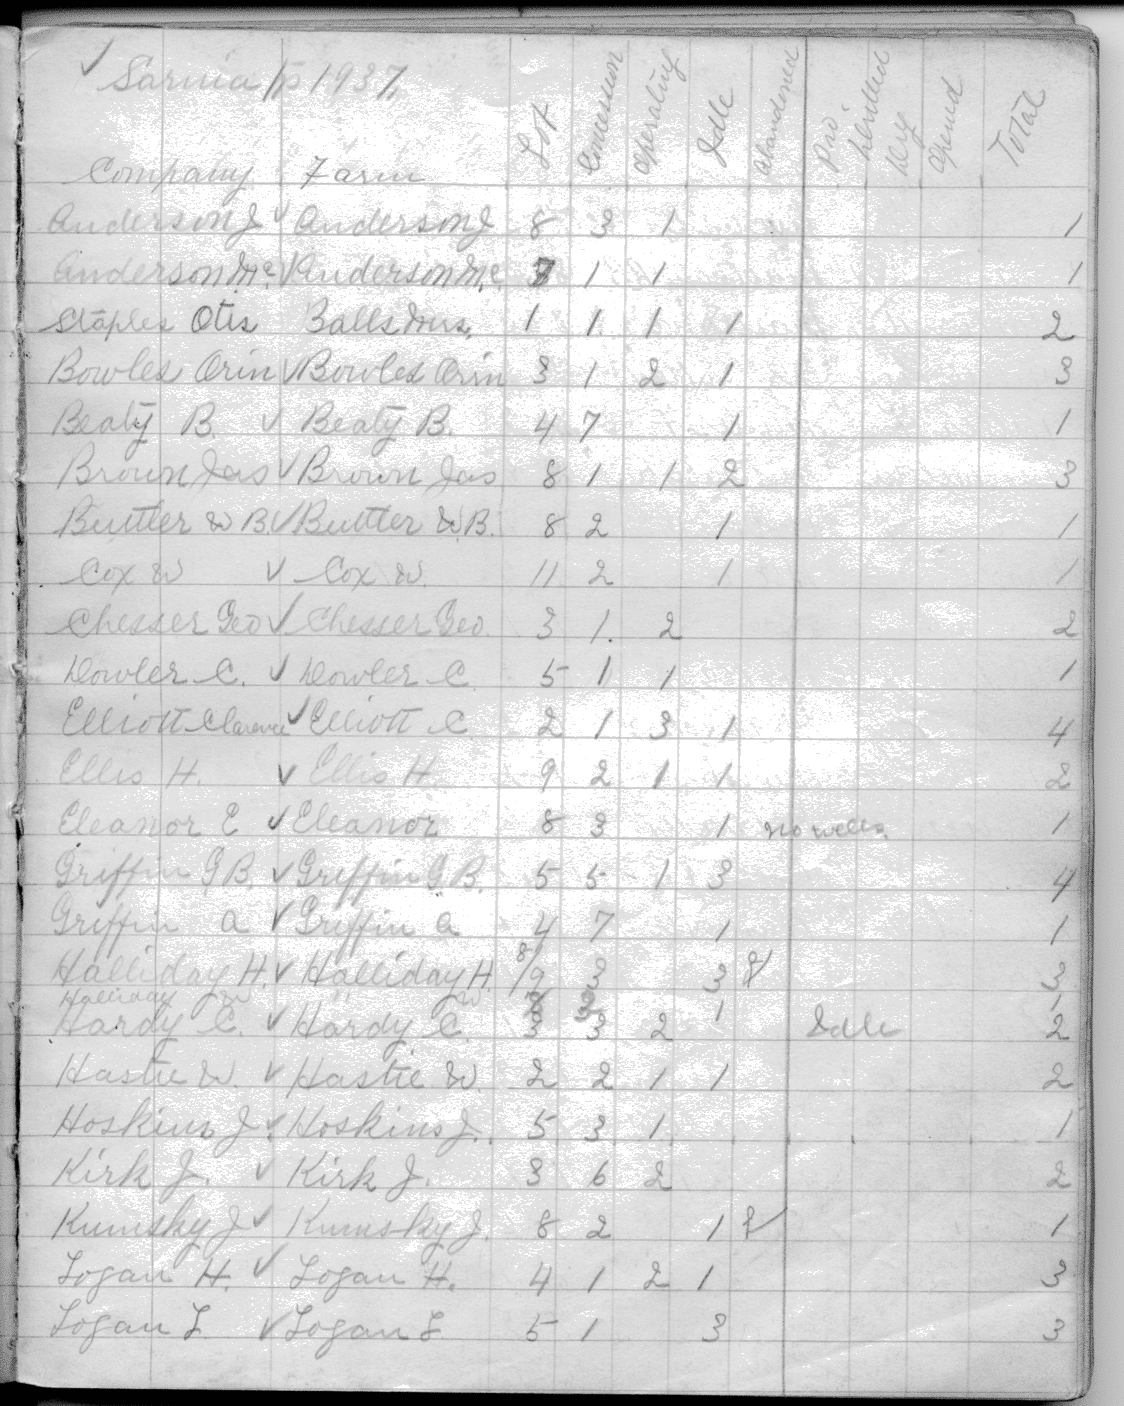 ✓ Sarnia Tp 1937.
Company Farm Lot Concession Operating Idle Abandoned Pro Drilled Key Opened Total
Anderson J ✓ Anderson J 8 3 1 1
Anderson Mc. ✓ Anderson Mc 7 1 1 1
Staples Otis Balls Mrs. 1 1 1 1 2
Bowles Orin ✓ Bowles Orin 3 1 2 1 3
Beaty B. ✓ Beaty B. 4 7 1 1
Brown Jas ✓ Brown Jas 8 1 1 2 3
Buttler W B. ✓ Buttler W.B. 8 2 1 1
Cox W ✓ Cox W. 11 2 1 1
Chesser Geo ✓ Chesser Geo. 3 1. 2 2
Dowler C. ✓ Dowler C. 5 1 1 1
Elliott Clarence ✓ Elliott C 2 1 3 1 4
Ellis H. ✓ Ellis H. 9 2 1 1 2
Eleanor E ✓ Eleanor 8 3 1 no wells. 1
Griffin G B. ✓ Griffin G.B. 5 5 1 3 4
Griffin A ✓ Griffin A 4 7 1 1
Halliday H. ✓ Halliday H. 8/9 3 3 3
Halliday W " W 8 3 1 1
Hardy C. ✓ Hardy C. 3 3 2 Idle 2
Hastie W. ✓ Hastie W. 2 2 1 1 2
Hoskins J ✓ Hoskins J. 5 3 1 1
Kirk J. ✓ Kirk J. 3 6 2 2
Kumsky J ✓ Kumsky J. 8 2 1 1
Logan H. ✓ Logan H. 4 1 2 1 3
Logan L ✓ Logan L 5 1 3 3